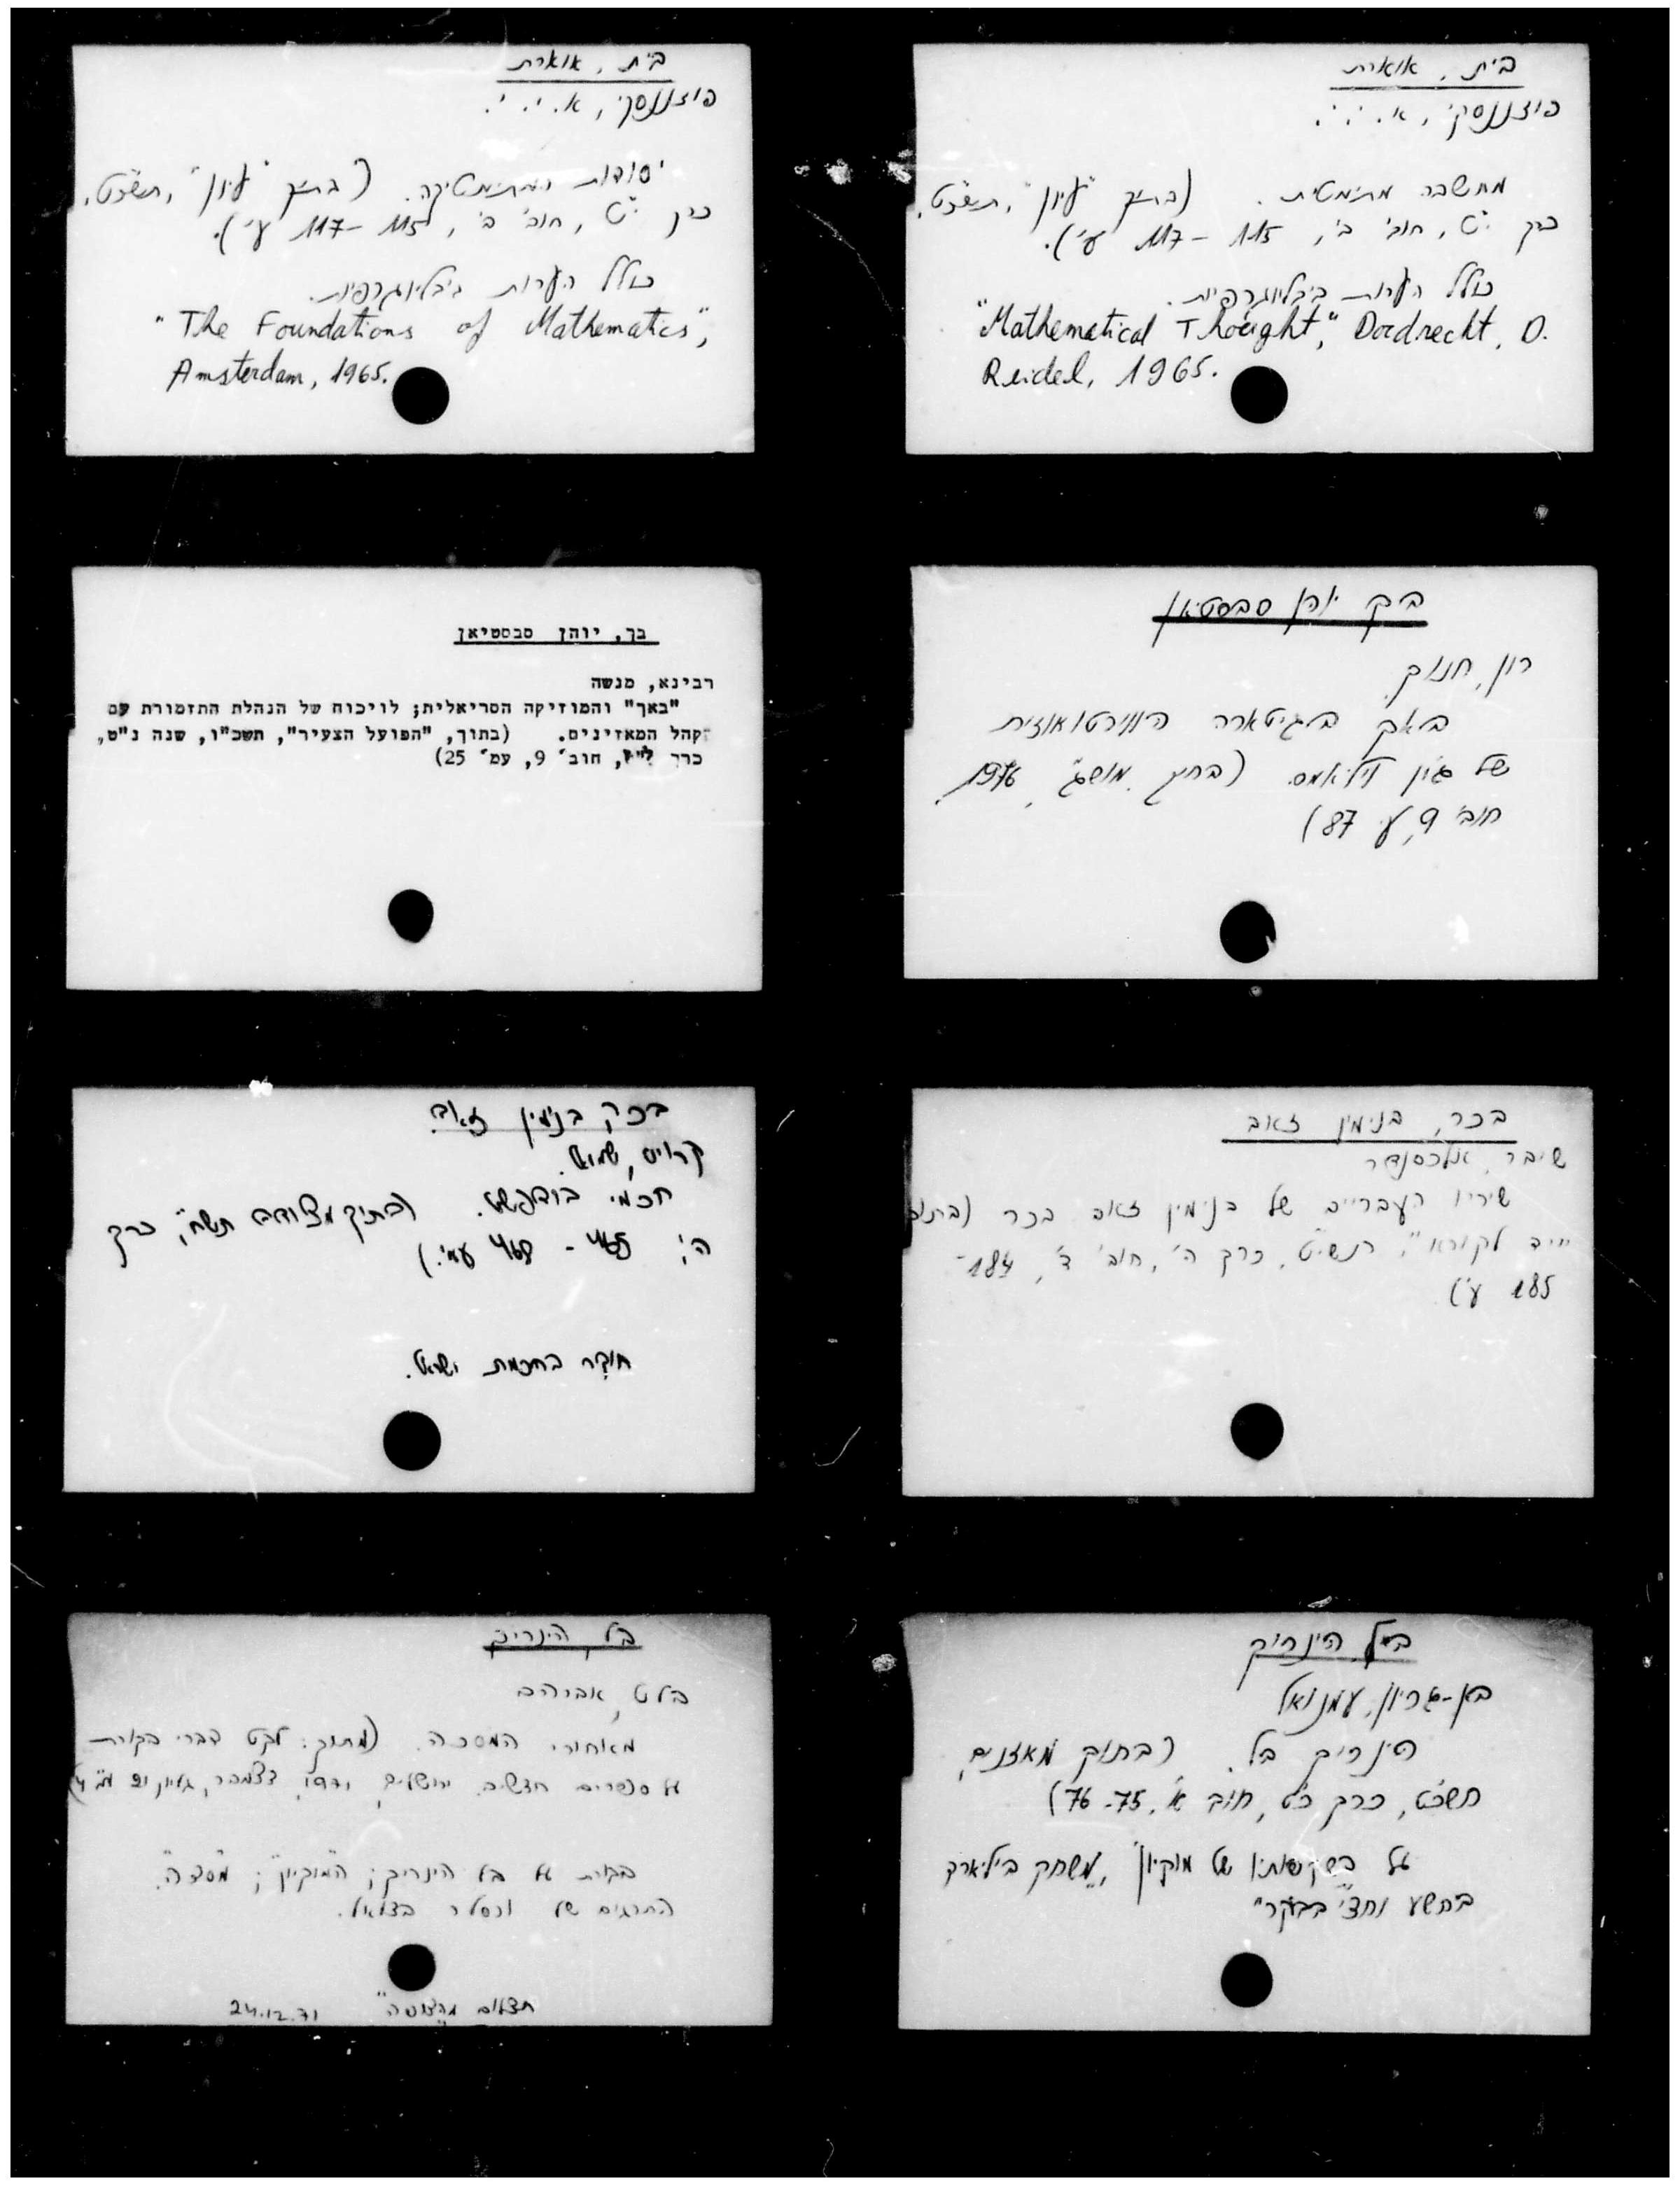 בית, אוארת
פוזננסקי, א. י. י.
יסודות המתימטיקה. (בתוך "עיון", תשכ"ט,
כרך י"ט, חוב' ב', 115–117 ע').
כולל הערות ביבליוגרפיות.
"The Foundations of Mathematics",
Amsterdam, 1965.
בית, אוארת
פוזננסקי, א. י. י.
מחשבה מתימטית. (בתוך "עיון", תשכ"ט,
כרך י"ט, חוב' ב', 115–117 ע').
כולל הערות ביבליוגרפיות.
"Mathematical Thought", Dordrecht, D.
Reidel, 1965.
בך, יוהן סבסטיאן
רבינא, מנשה
"באך" והמוזיקה הסריאלית; לויכוח של הנהלת התזמורת עם
קהל המאזינים. (בתוך, "הפועל הצעיר", תשכ"ו, שנה נ"ט,
כרך ל"ז, חוב' 9, עמ' 25)
יוהן סבסטיאן
רון, חנוך
באך בגיטארה הווירטואוזית
של ג'ון ויליאמס. (בתוך "מושג" 1976,
חוב' 9, ע' 87)
בכר, בנימין זאב
קרויס, שמואל.
חכמי בודפשט. (בתוך "מצודה" תש"ח, כרך
ה', 465 - 468 עמ'.)
חוקר בחכמת ישראל.
בכר, בנימין זאב
שיבר, אלכסנדר
שיריו העבריים של בנימין זאב בכר (בתוך
"יד לקורא", תשי"ט, כרך ה', חוב' ד',
185 ע')
בל, הינריך
בלט, אברהם
מאחורי המסכה. (מתוך: לקט דברי בקורת
על ספרים חדשים. ירושלים, 1971, דצמבר, גליון 21
בקורת על בל הינריך; "המוקיון"; "מסדה".
התרגום של וכסלר בצלאל.
תצלום מ"הצופה" 24.12.71
בל, הינריך
בן-גריון, עמנואל
הינריך בל. (בתוך מאזנים,
תשכ"ט, כרך כ"ט, חוב' א', 75-76)
על של מוקיון, "משחק ביליארד
בתשע וחצי בבוקר"